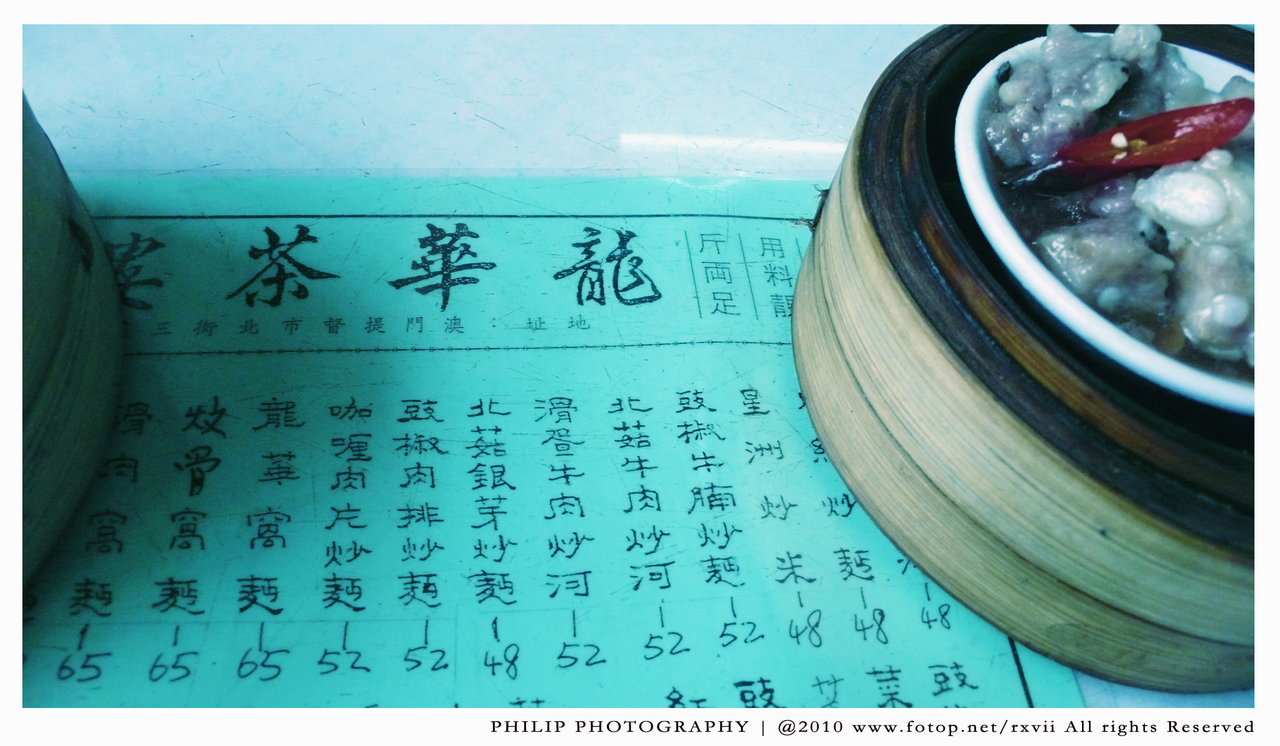 龍華茶
用料靚
斤両足
地址：澳門提督市北街三
星洲炒米 48
豉椒牛腩炒麵 52
北菇牛肉炒河 52
滑蛋牛肉炒河 52
北菇銀芽炒麵 48
豉椒肉排炒麵 52
咖喱肉片炒麵 52
龍華窩麵 65
炆骨窩麵 65
滑肉窩麵 65
炒麵 48
48
豉
菜
豉
紅
PHILIP PHOTOGRAPHY | @2010 www.fotop.net/rxvii All rights Reserved